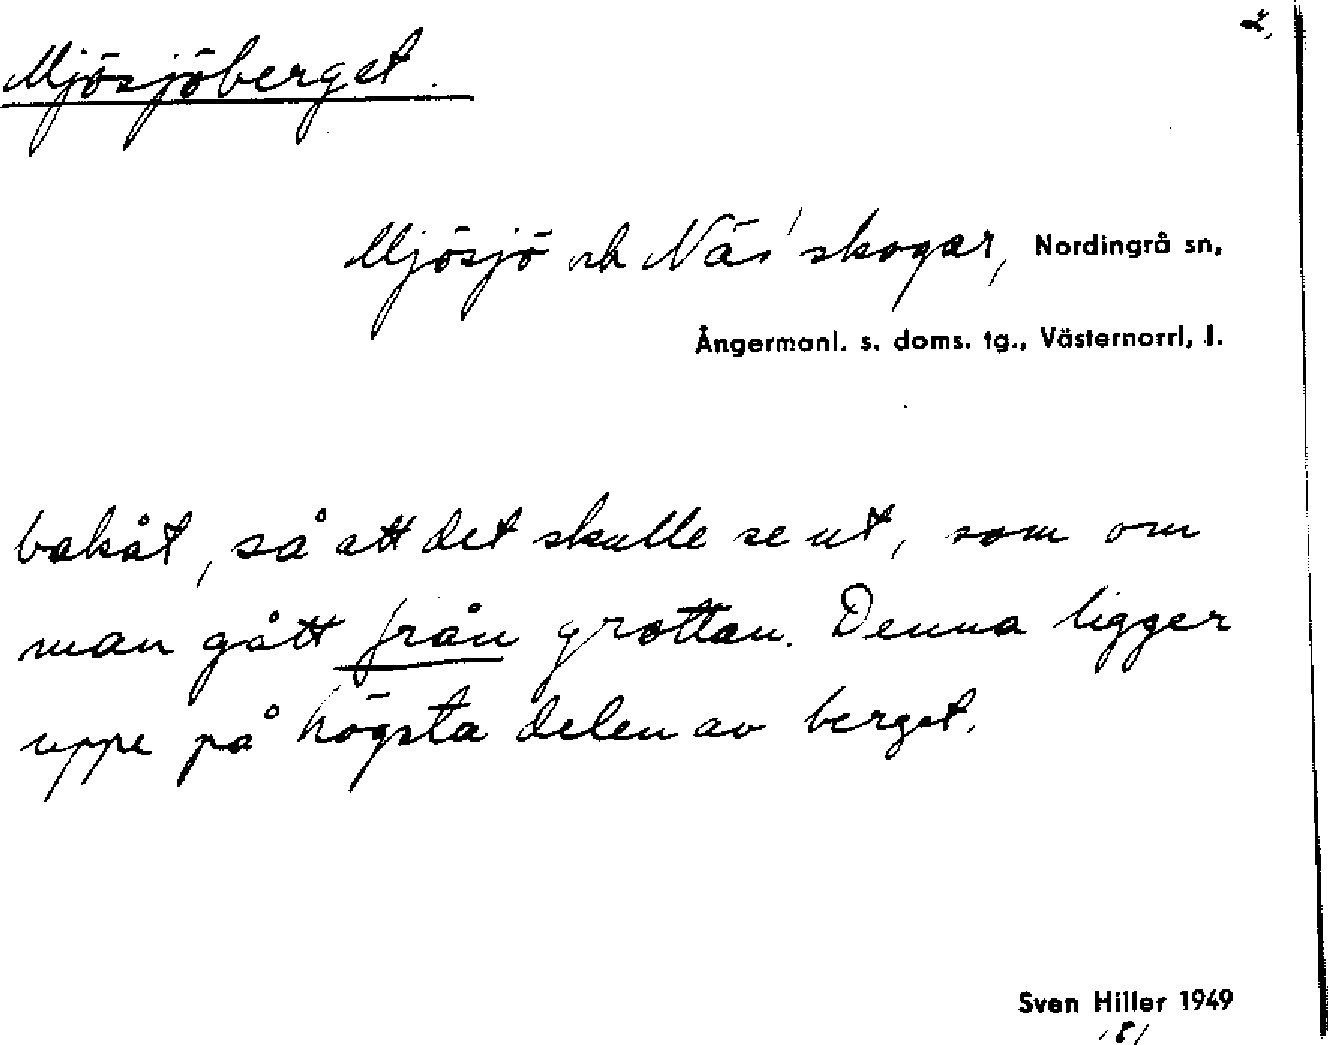 2.
Mjösjöberget.
Mjösjö och Näs' skogar, Nordingrå sn,
Ångermanl. s. doms. tg., Västernorrl. l.
bakåt, så att det skulle se ut, som om
man gått från grottan. Denna ligger
uppe på högsta delen av berget.
Sven Hiller 1949
/8/